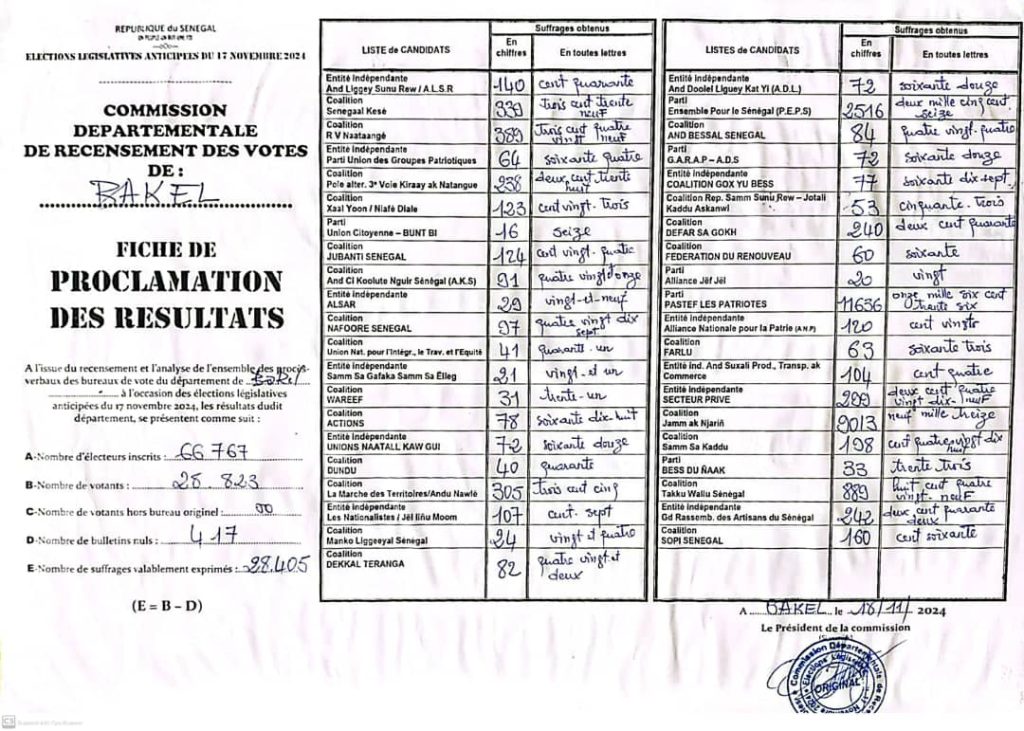 REPUBLIQUE du SENEGAL
ELECTIONS LEGISLATIVES ANTICIPEES DU 17 NOVEMBRE 2024
COMMISSION
DEPARTEMENTALE
DE RECENSEMENT DES VOTES
DE :
BAKEL
FICHE DE
PROCLAMATION
DES RESULTATS
A l'issue du recensement et l'analyse de l'ensemble des procès-
verbaux des bureaux de vote du département de Bakel
à l'occasion des élections législatives
anticipées du 17 novembre 2024, les résultats dudit
département, se présentent comme suit :
A-Nombre d'électeurs inscrits : 66 767
B-Nombre de votants : 28.823
C-Nombre de votants hors bureau originel : 00
D-Nombre de bulletins nuls : 417
E-Nombre de suffrages valablement exprimés : 28.405
(E = B – D)
LISTE de CANDIDATS
Suffrages obtenus
En chiffres
En toutes lettres
Entité Indépendante
And Liggey Sunu Rew / A.L.S.R 140 cent quarante
Coalition
Senegaal Kesé 339 trois cent trente neuf
Coalition
R V Naataangé 389 trois cent quatre vingt neuf
Entité Indépendante
Parti Union des Groupes Patriotiques 64 soixante quatre
Coalition
Pole alter. 3e Voie Kiraay ak Natangue 238 deux cent trente huit
Coalition
Xaal Yoon / Niafé Diale 123 cent vingt-trois
Parti
Union Citoyenne – BUNT BI 16 seize
Coalition
JUBANTI SENEGAL 124 cent vingt-quatre
Coalition
And Ci Koolute Nguir Sénégal (A.K.S) 91 quatre vingt onze
Entité Indépendante
ALSAR 29 vingt-et-neuf
Coalition
NAFOORE SENEGAL 97 quatre vingt dix sept
Coalition
Union Nat. pour l'Intégr., le Trav. et l'Equité 41 quarante-un
Entité Indépendante
Samm Sa Gafaka Samm Sa Ëlleg 21 vingt-et un
Coalition
WAREEF 31 trente-un
Coalition
ACTIONS 78 soixante dix huit
Entité Indépendante
UNIONS NAATALL KAW GUI 72 soixante douze
Coalition
DUNDU 40 quarante
Coalition
La Marche des Territoires/Andu Nawlé 305 trois cent cinq
Entité Indépendante
Les Nationalistes / Jël liñu Moom 107 cent-sept
Coalition
Manko Liggeeyal Sénégal 24 vingt et quatre
Coalition
DEKKAL TERANGA 82 quatre vingt et deux
LISTES de CANDIDATS
Suffrages obtenus
En chiffres
En toutes lettres
Entité Indépendante
And Doolel Liguey Kat Yi (A.D.L) 72 soixante douze
Parti
Ensemble Pour le Sénégal (P.E.P.S) 2516 deux mille cinq cent seize
Coalition
AND BESSAL SENEGAL 84 quatre vingt-quatre
Parti
G.A.R.A.P – A-D-S 72 soixante douze
Entité Indépendante
COALITION GOX YU BESS 77 soixante dix sept
Coalition Rep. Samm Sunu Rew – Jotali
Kaddu Askanwi 53 cinquante-trois
Coalition
DEFAR SA GOKH 240 deux cent quarante
Coalition
FEDERATION DU RENOUVEAU 60 soixante
Parti
Alliance Jëf Jël 20 vingt
Parti
PASTEF LES PATRIOTES 11636 onze mille six cent trente six
Entité Indépendante
Alliance Nationale pour la Patrie (A.N.P) 120 cent vingts
Coalition
FARLU 63 soixante trois
Entité Ind. And Suxali Prod., Transp. ak
Commerce 104 cent quatre
Entité Indépendante
SECTEUR PRIVE 299 deux cent quatre vingt dix-neuf
Coalition
Jamm ak Njariñ 9013 neuf mille treize
Coalition
Samm Sa Kaddu 198 cent quatre-vingt dix huit
Parti
BESS DU ÑAAK 33 trente trois
Coalition
Takku Wallu Sénégal 889 huit cent quatre vingt-neuf
Entité Indépendante
Gd Rassemb. des Artisans du Sénégal 242 deux cent quarante deux
Coalition
SOPI SENEGAL 160 cent soixante
A BAKEL le 18/11/ 2024
Le Président de la commission
Commission Départementale de
Elections Législatives
ORIGINAL
CS